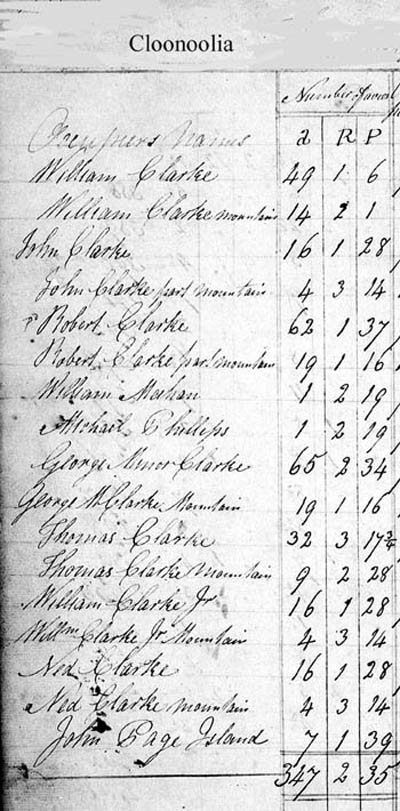 Cloonoolia
Number of acres
Occupiers Names a R P
William Clarke 49 1 6
William Clarke mountain 14 2 1
John Clarke 16 1 28
John Clarke part mountain 4 3 14
Robert Clarke 62 1 37
Robert Clarke part mountain 19 1 16
William Meehan 1 2 19
Michael Phillips 1 2 19
George Minor Clarke 65 2 34
George M Clarke Mountain 19 1 16
Thomas Clarke 32 3 17¾
Thomas Clarke mountain 9 2 28
William Clarke Jr 16 1 28
Willm Clarke Jr Mountain 4 3 14
Ned Clarke 16 1 28
Ned Clarke mountain 4 3 14
John Page Island 7 1 39
347 2 35